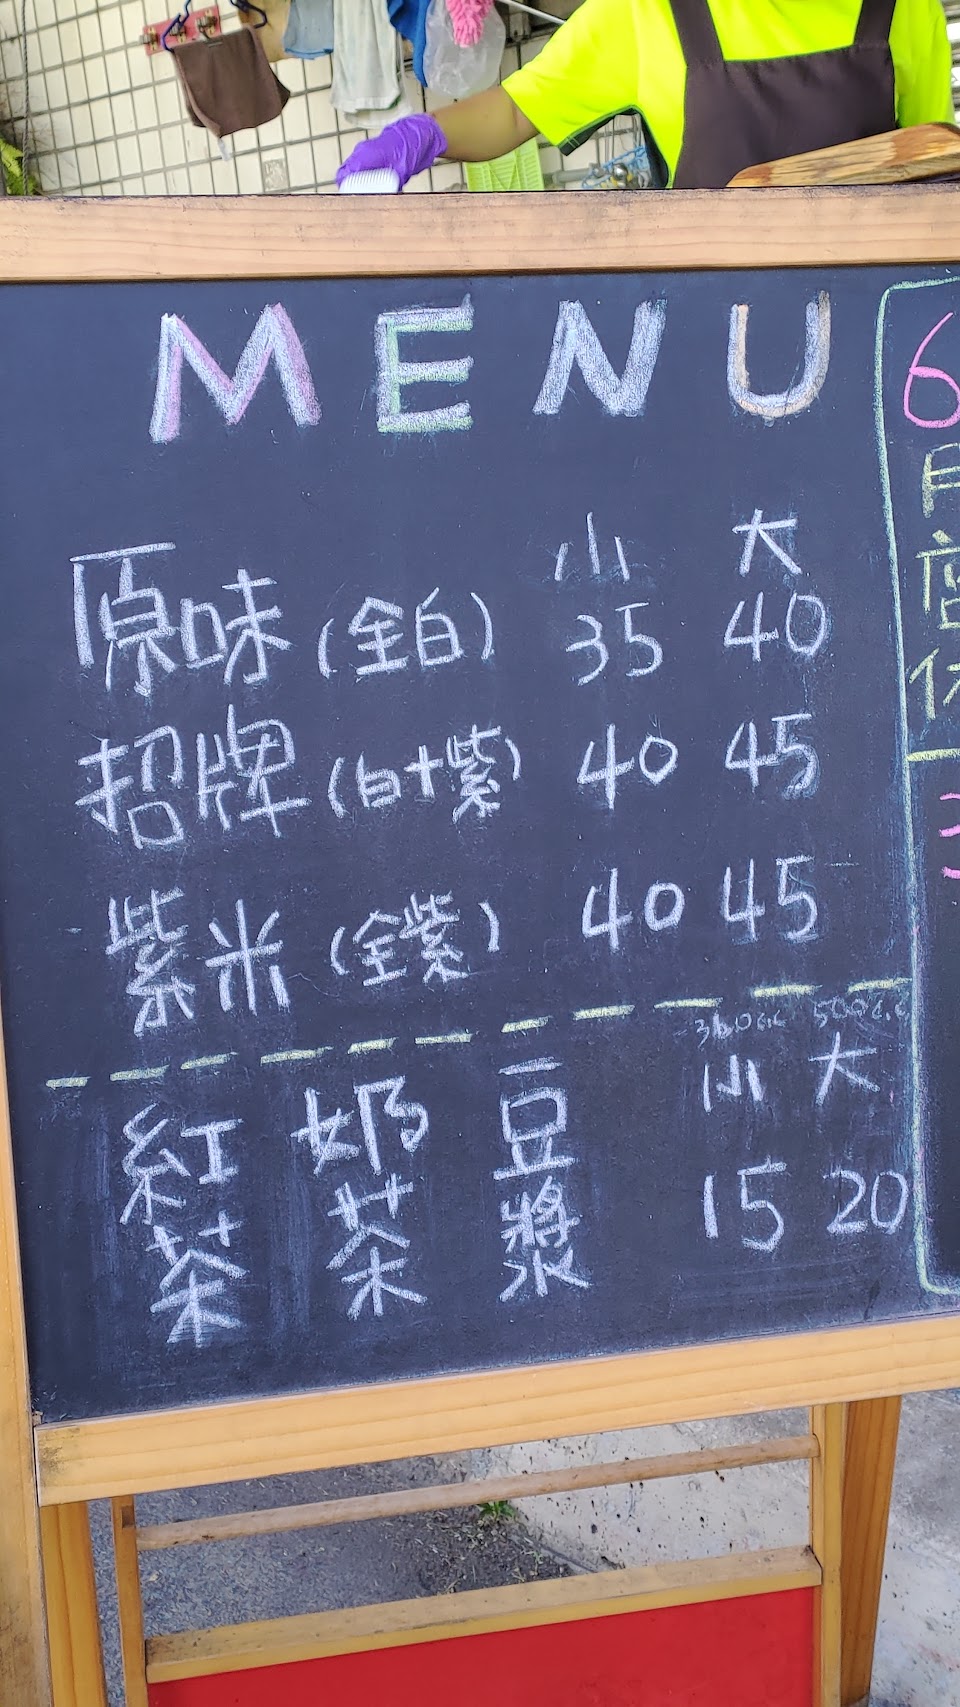 MENU
小 大
原味(全白) 35 40
招牌(白+紫) 40 45
紫米(全紫) 40 45
360c.c 500c.c
小 大
紅茶 奶茶 豆漿 15 20
6
月